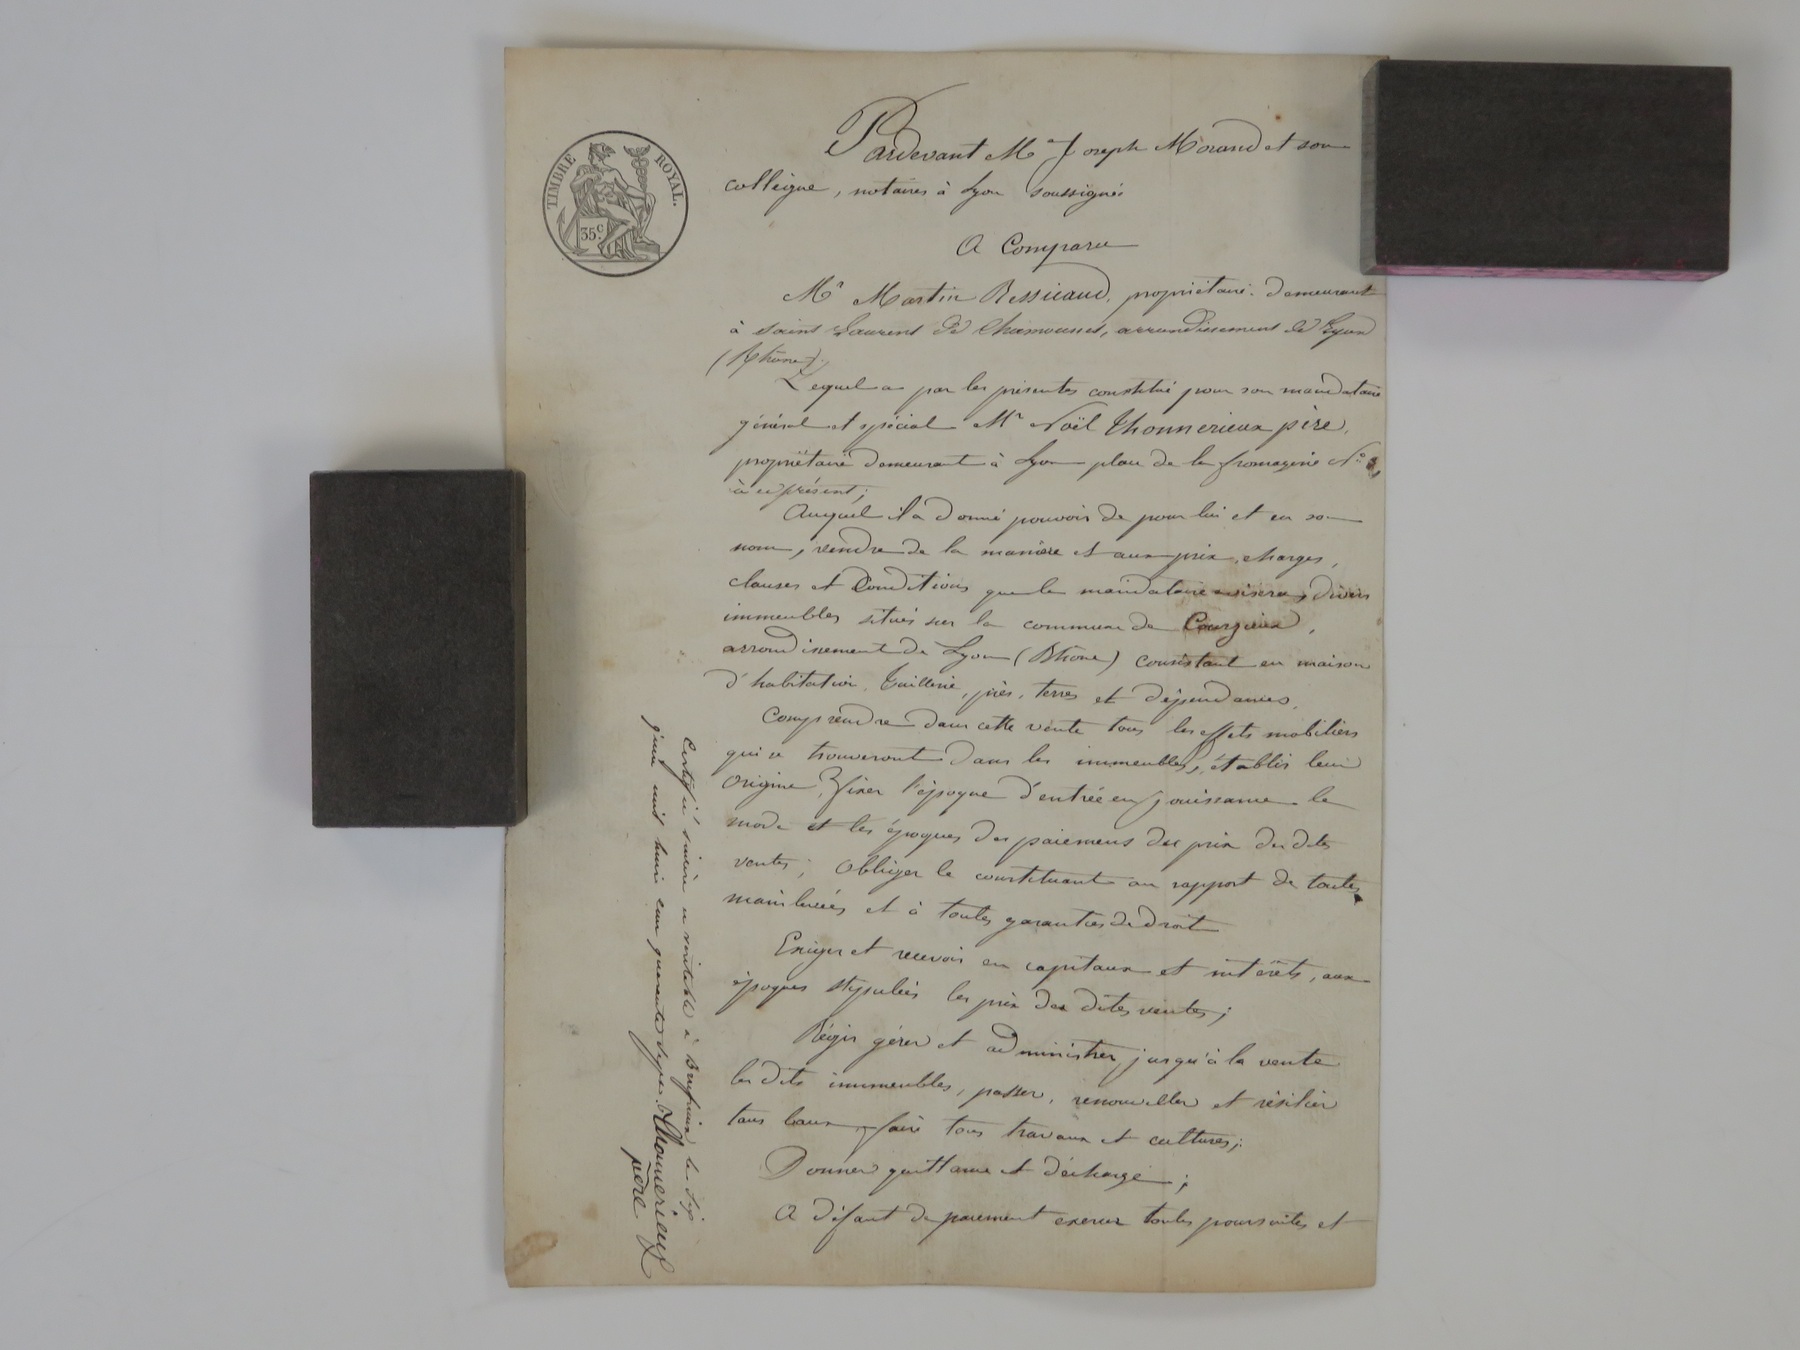 TIMBRE ROYAL.
35c.
Pardevant Me Joseph Morand et son
collègue, notaires à Lyon soussignés
A Comparu
Mr Martin Bessicaud, propriétaire demeurant
à Saint Laurent de Chamousset, arrondissement de Lyon
(Rhône);
Lequel a par les présentes constitué pour son mandataire
général et spécial Mr Noël Thonnerieux père,
propriétaire demeurant à Lyon place de la fromagerie No
à ce présent;
Auquel il a donné pouvoir de pour lui et en son
nom, vendre de la manière et aux prix, charges,
clauses et Conditions que le mandataire avisera, divers
immeubles situés sur la commune de Courzieux,
arrondissement de Lyon (Rhône) consistant en maison
d'habitation, Tuillerie, près, terres et dépendances,
Comprendre dans cette vente tous les effets mobiliers
qui se trouveront dans les immeubles, établir leur
origine, fixer l'époque d'entrée en jouissance le
mode et les époques des paiemens des prix des dites
ventes; obliger le constituant au rapport de toutes
mainlevées et à toutes garanties de droit
Exiger et recevoir en capitaux et intérêts, aux
époques stipulées les prix des dites ventes;
Régir gérer et administrer, jusqu'à la vente
les dits immeubles, passer, renouveller et résilier
tous baux, faire tous travaux et cultures;
Donner quittance et décharge;
A défaut de paiement exercer toutes poursuites et
Certifié sincère et véritable à le
mil huit cent quarante Thonnerieux
père